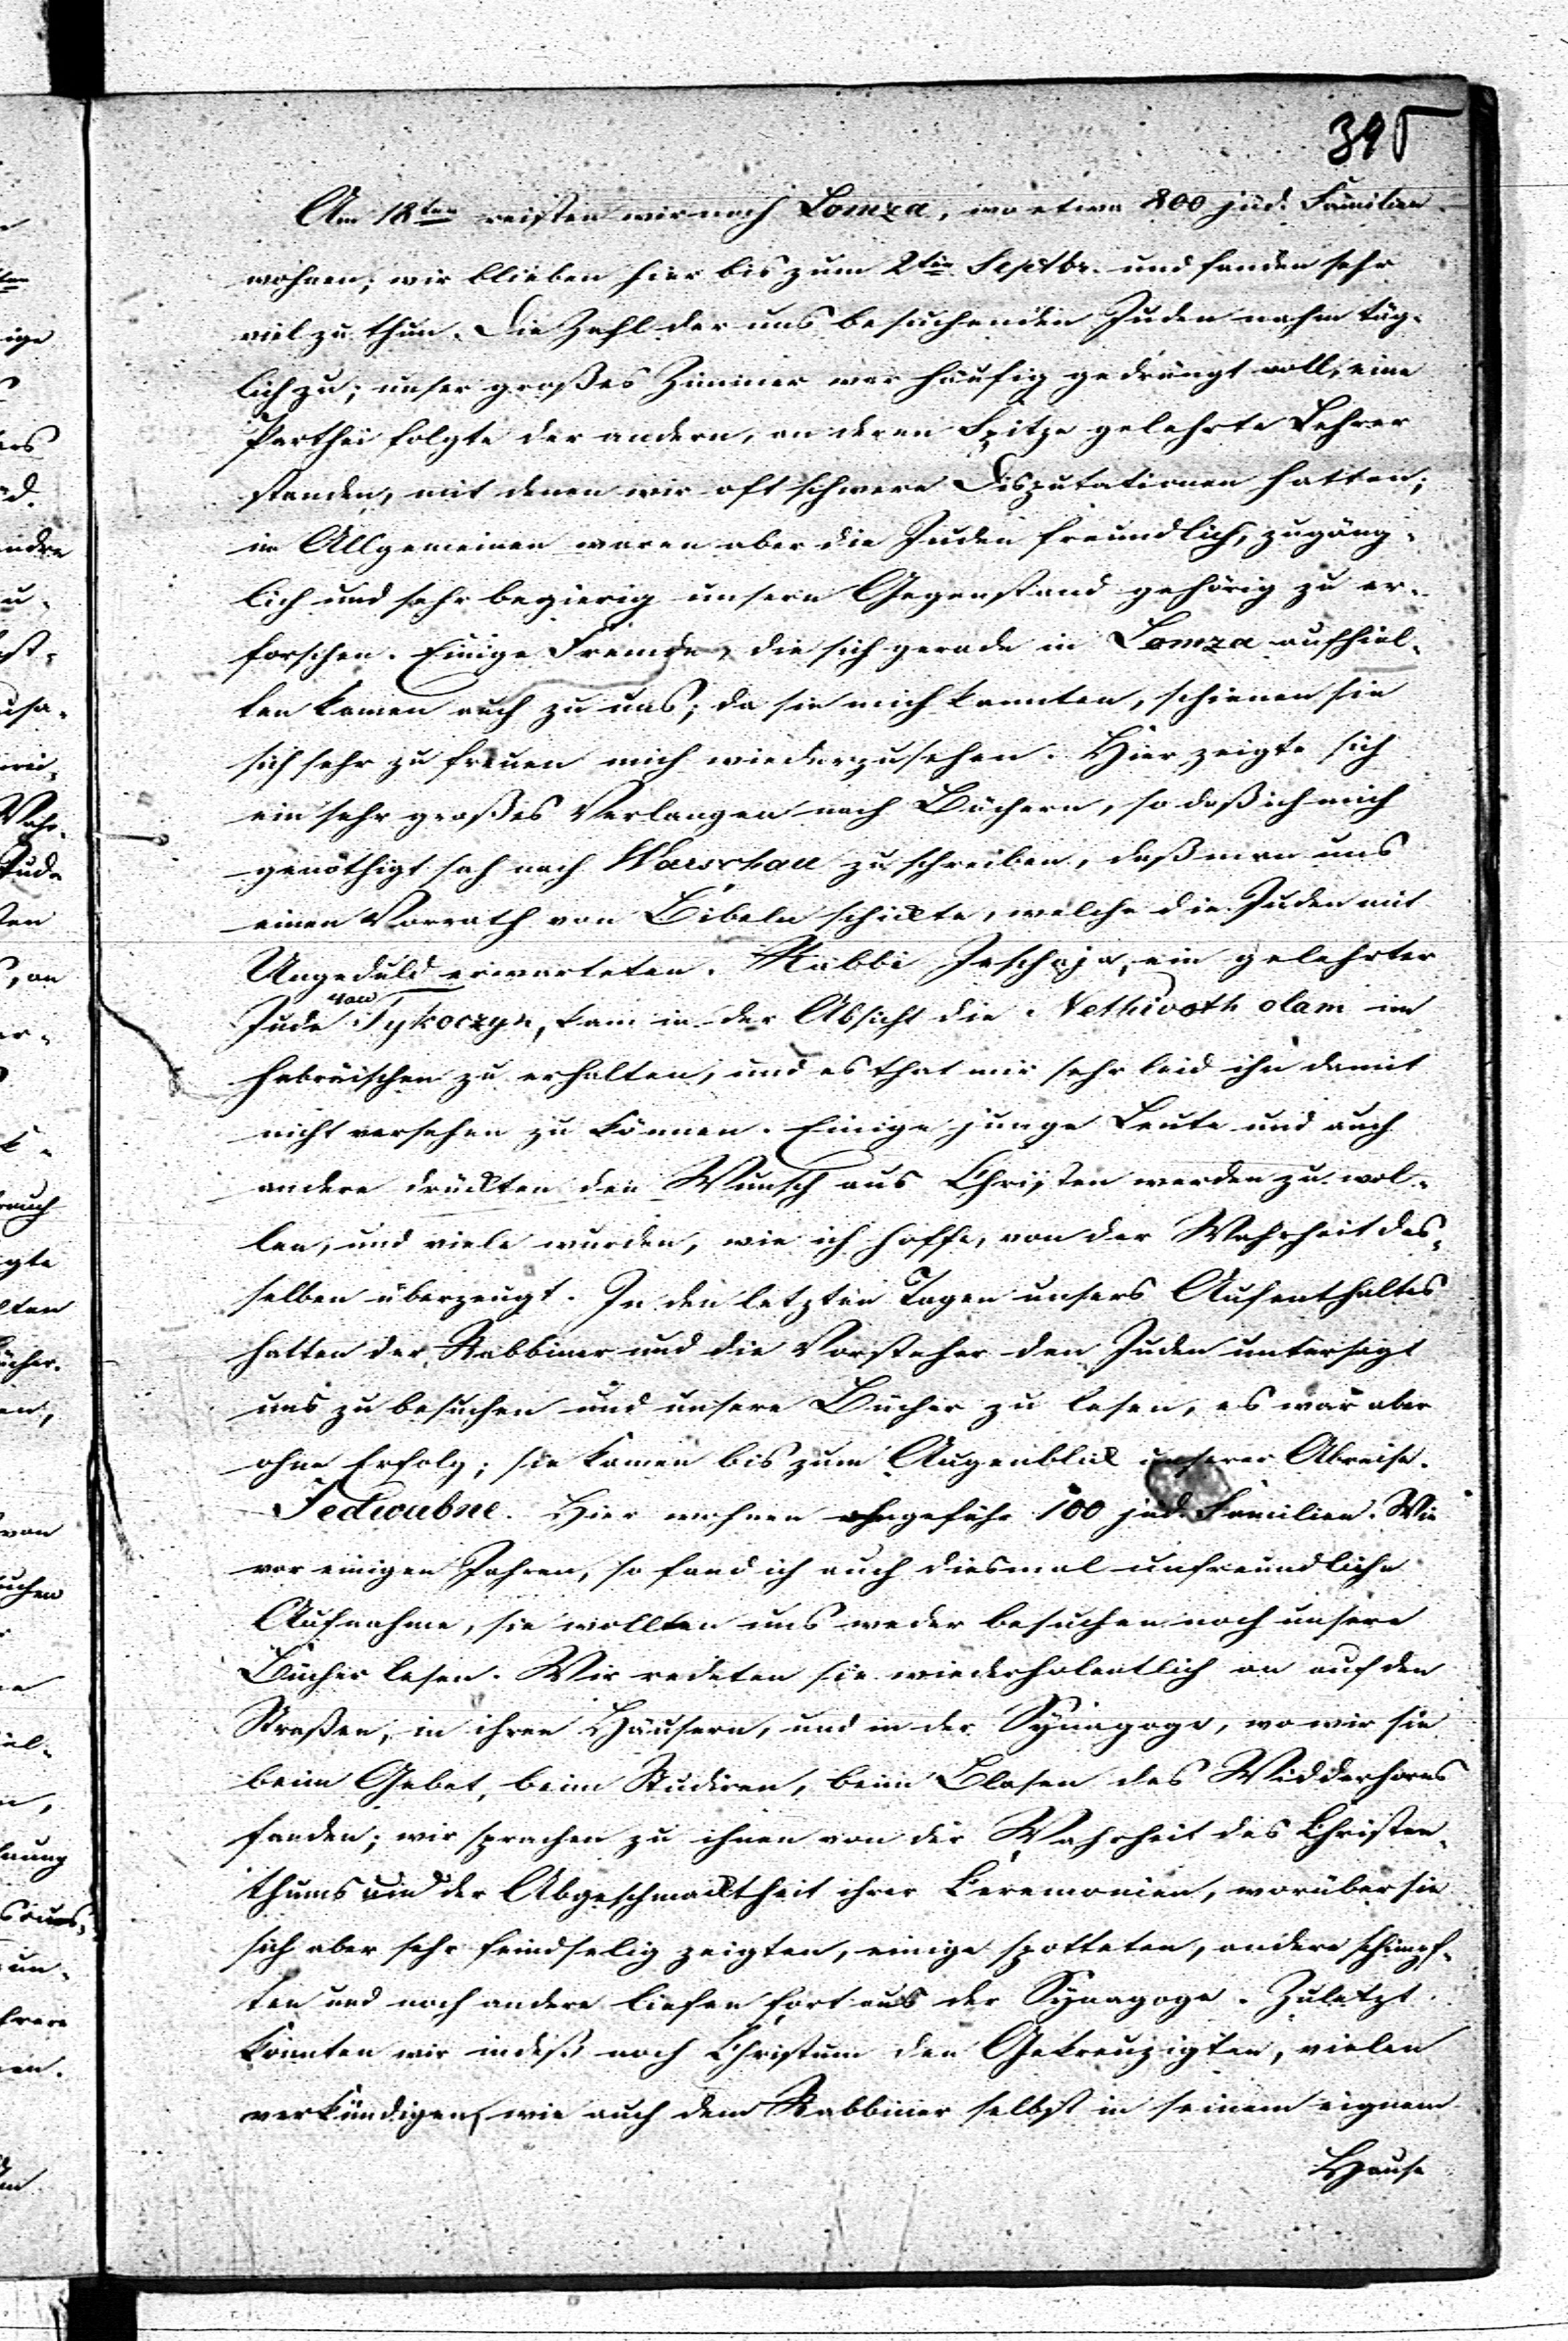 395
Am 18ten reisten wir nach Lomza, wo etwa 800 jüd. Familien
wohnen; wir blieben hier bis zum 2ten Septbr. und fanden sehr
viel zu thun. Die Zahl der uns besuchenden Juden nahm täg-
lich zu; unser großes Zimmer war häufig gedrängt voll; eine
Parthei folgte der andern, an deren Spitze gelehrte Lehrer
standen, mit denen wir oft schwere Disputationen hatten;
im Allgemeinen waren aber die Juden freundlich, zugäng-
lich und sehr begierig unsern Gegenstand gehörig zu er-
forschen. Einige Fremde, die sich gerade in Lomza aufhiel-
ten kamen auch zu uns; da sie mich kannten, schienen sie
sich sehr zu freuen mich wiederzusehen. Hier zeigte sich
ein sehr großes Verlangen nach Büchern, so daß ich mich
genöthigt sah nach Warschau zu schreiben, daß man uns
einen Vorrath von Bibeln schickte, welche die Juden mit
Ungeduld erwarteten. Rabbi Jeschaja, ein gelehrter
Jude von Tykoczyn, kam in der Absicht die Nethivoth olam im
hebräischen zu erhalten, und es that mir sehr leid ihn damit
nicht versehen zu können. Einige junge Leute und auch
andere drückten den Wunsch aus Christen werden zu wol-
len, und viele wurden, wie ich hoffe, von der Wahrheit des-
selben überzeugt. In den letzten Tagen unsers Aufenthaltes
hatten der Rabbiner und die Vorsteher den Juden untersagt
uns zu besuchen und unsere Bücher zu lesen, es war aber
ohne Erfolg; sie kamen bis zum Augenblick unserer Abreise.
Jedwubne. Hier wohnen ohngefähr 100 jüd. Familien. Wie
vor einigen Jahren, so fand ich auch diesmal unfreundliche
Aufnahme, sie wollten uns weder besuchen noch unsere
Bücher lesen. Wir redeten sie wiederholentlich an auf den
Straßen, in ihren Häusern, und in der Synagoge, wo wir sie
beim Gebet, beim Studiren, beim Blasen des Widderhorns
fanden; wir sprachen zu ihnen von der Wahrheit des Christen-
thums und der Abgeschmacktheit ihrer Ceremonien, worüber sie
sich aber sehr feindselig zeigten, einige spotteten, andere schimpf-
ten und noch andere liefen fort aus der Synagoge. Zuletzt
konnten wir indeß noch Christum den Gekreuzigten, vielen
verkündigen, wie auch dem Rabbiner selbst in seinem eignem
Hause